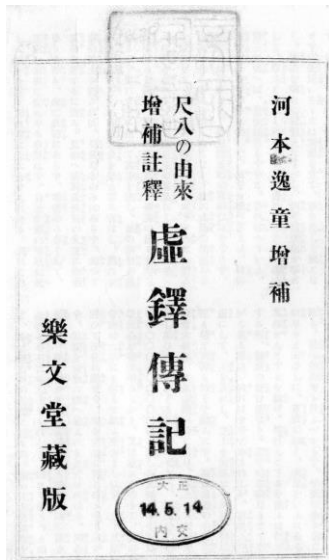 河本逸童增補
尺八の由來
增補註釋
虛鐸傳記
樂文堂藏版
大正
14.5.14
內交